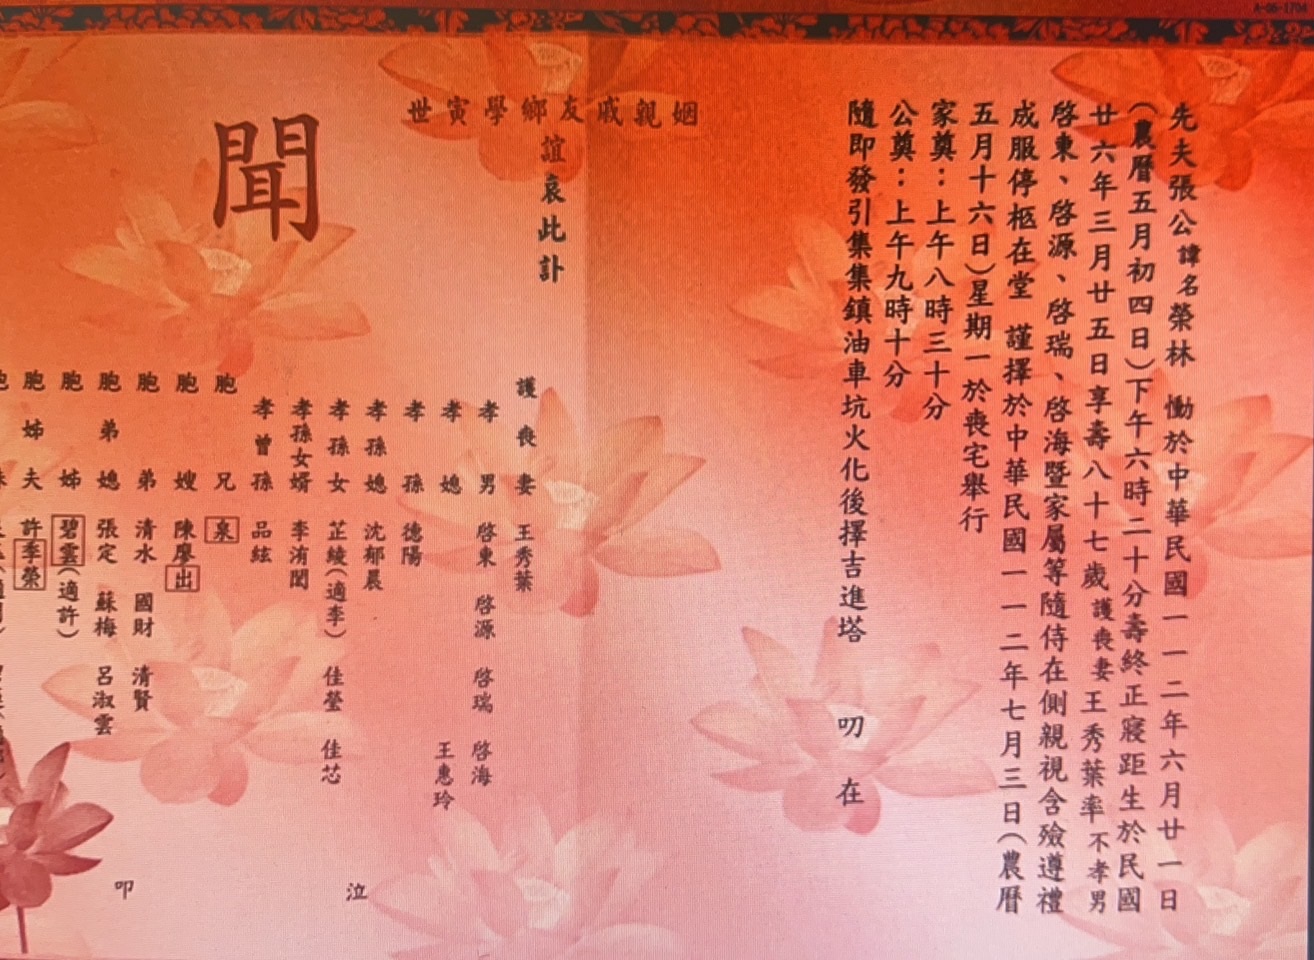 A-06-1704
先夫張公諱名榮林 慟於中華民國一一二年六月廿一日
(農曆五月初四日)下午六時二十分壽終正寢距生於民國
廿六年三月廿五日享壽八十七歲護喪妻王秀葉率不孝男
啓東、啓源、啓瑞、啓海暨家屬等隨侍在側親視含殮遵禮
成服停柩在堂 謹擇於中華民國一一二年七月三日(農曆
五月十六日)星期一於喪宅舉行
家奠：上午八時三十分
公奠：上午九時十分
隨即發引集集鎮油車坑火化後擇吉進塔 叨 在
姻親戚友鄉學寅世
誼哀此訃
聞
護喪妻 王秀葉
孝男 啓東 啓源 啓瑞 啓海
孝媳 王惠玲
孝孫 德陽
孝孫媳 沈郁晨
孝孫女 芷綾(適李) 佳瑩 佳芯
孝孫女婿 李洧閎
孝曾孫 品絃
胞兄 泉
胞嫂 陳廖出
胞弟 清水 國財 清賢
胞弟媳 張定 蘇梅 呂淑雲
胞姊 碧雲(適許)
胞姊夫 許季榮
泣
叩